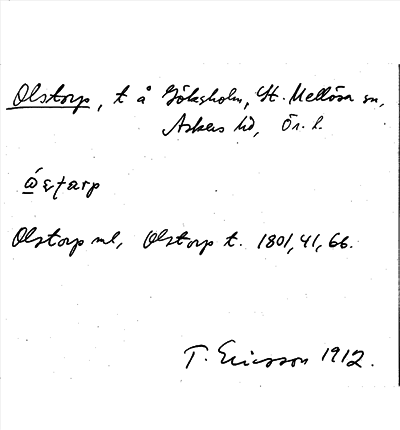 Olstorp, t å Göksholm, St. Mellösa sn,
Askers hd, Ör. l.
Olstorp ml, Olstorp t. 1801, 41, 66.
T. Ericsson 1912.